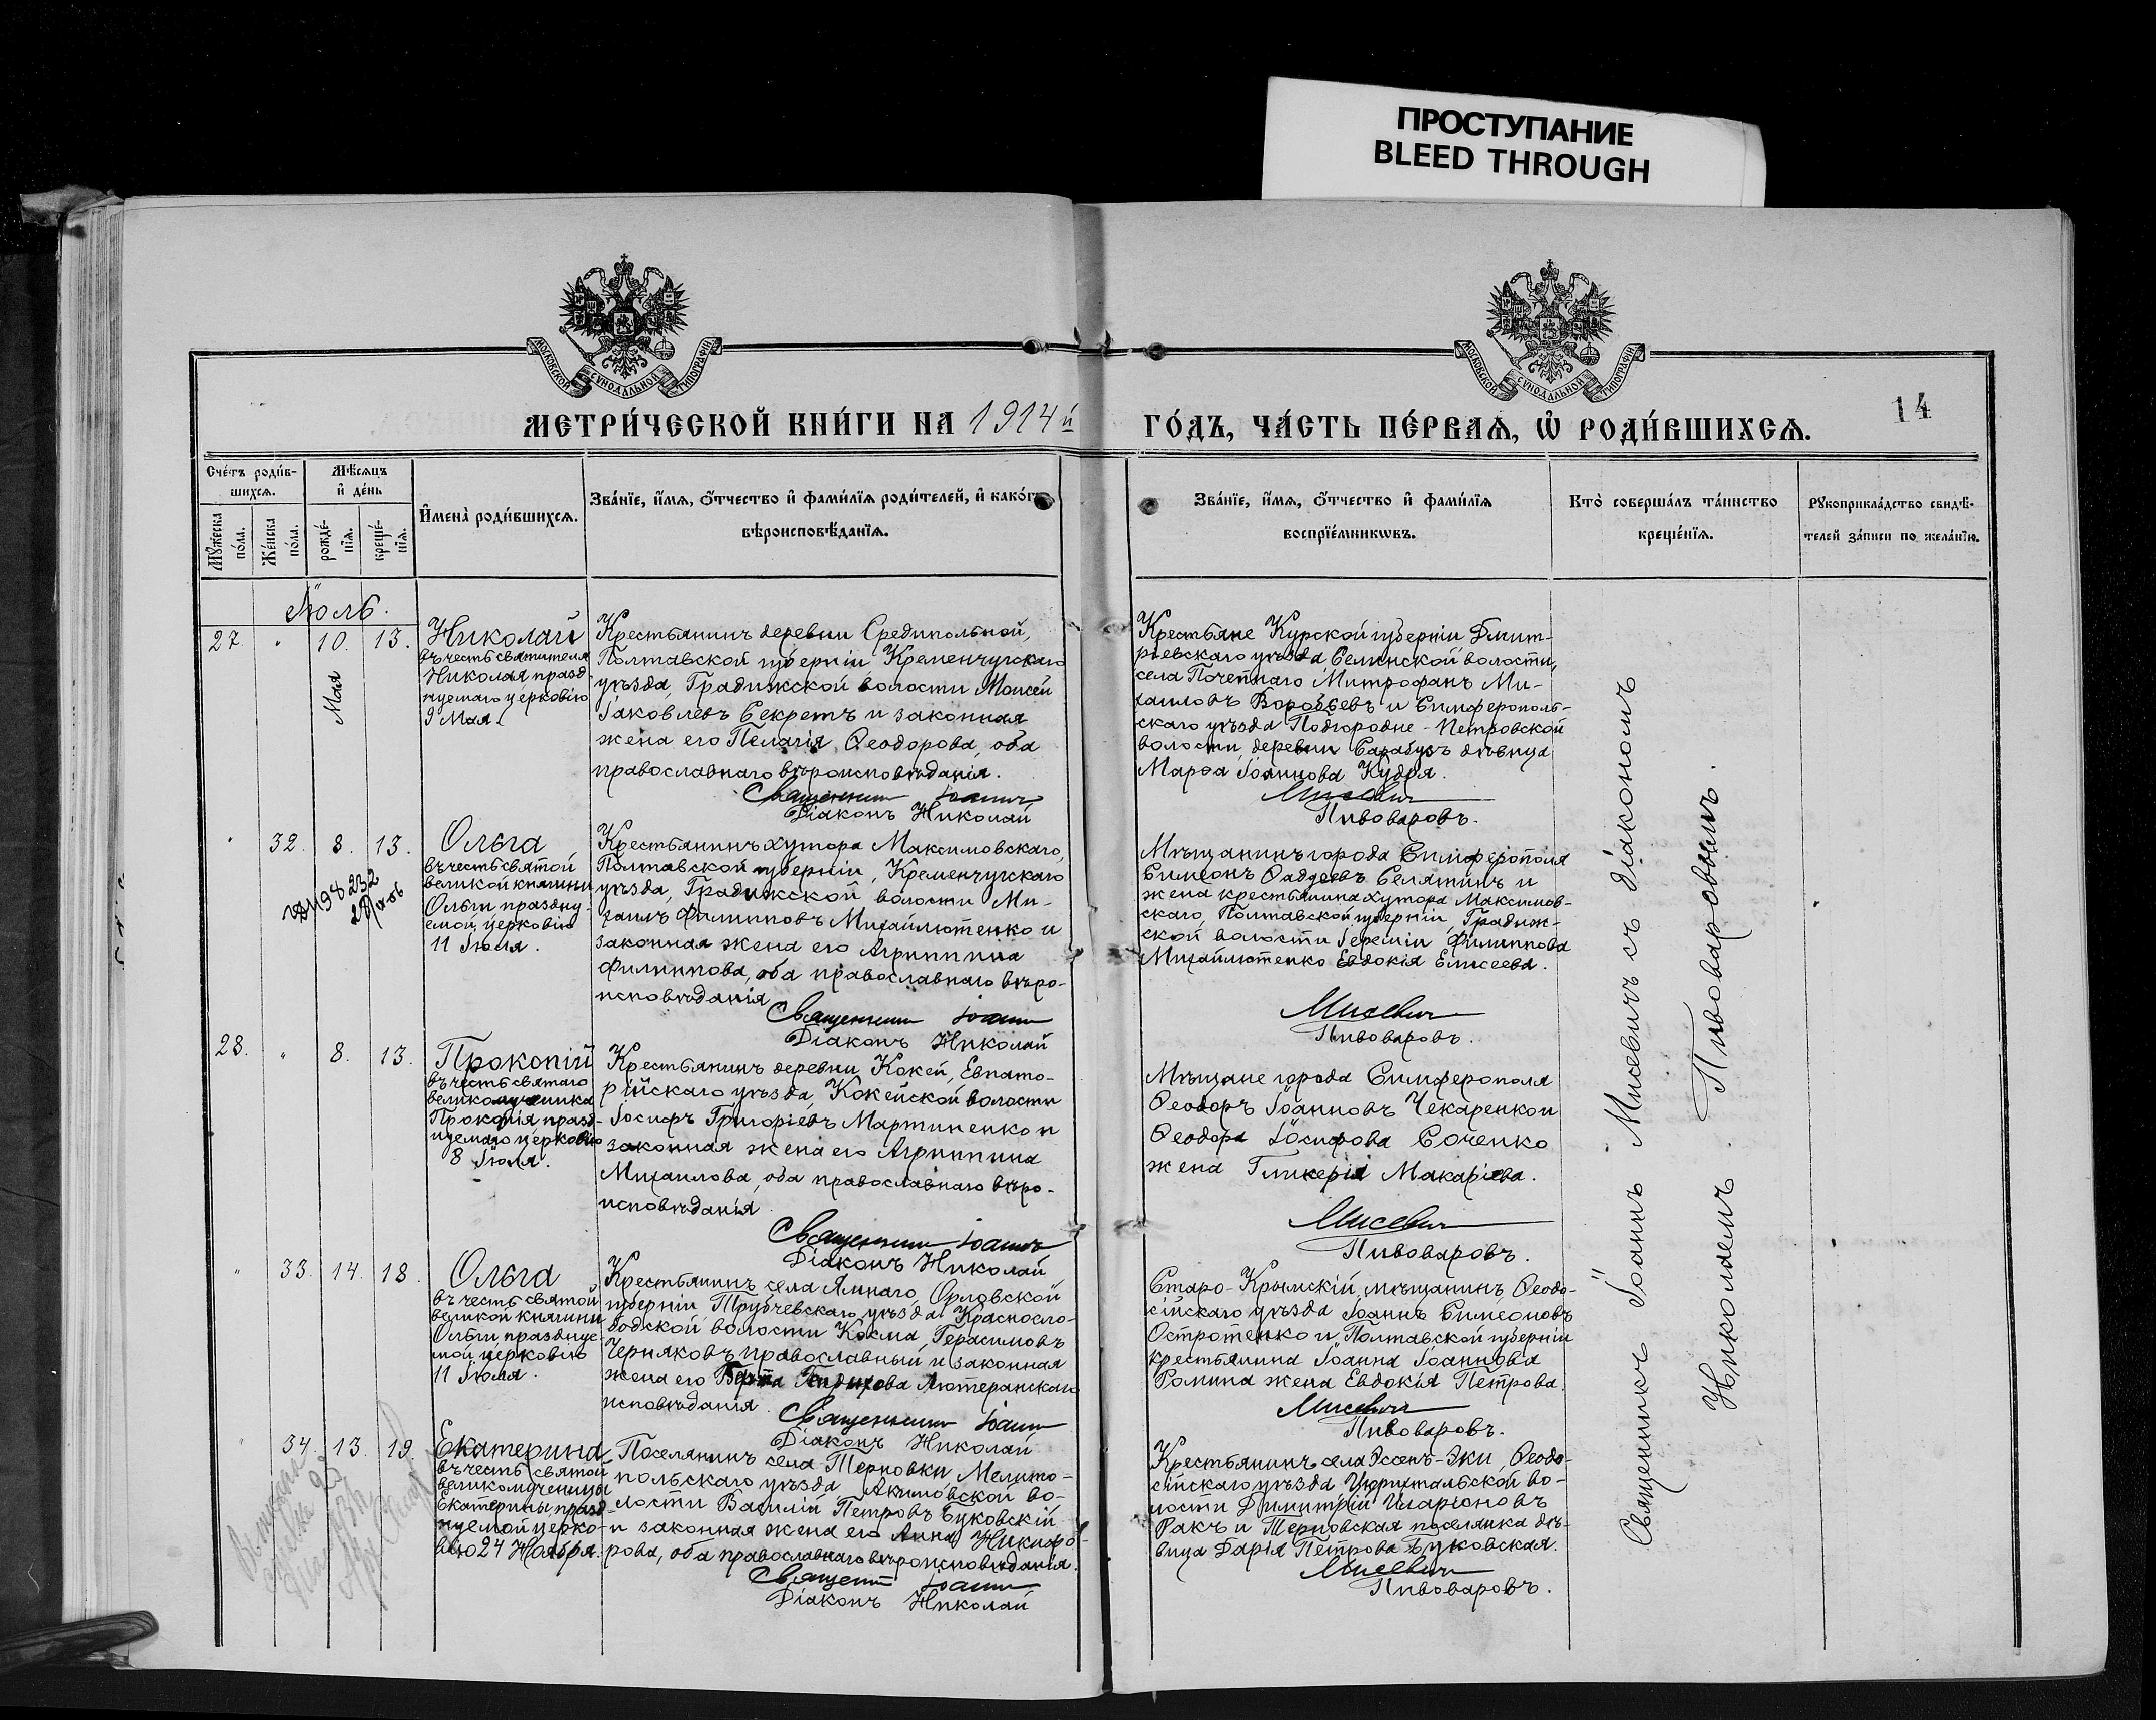 ПРОСТУПАНИЕ
BLEED THROUGH
МОСКОВСКОЙ СУНОДАЛЬНОЙ ТИПОГРАФІИ
МОСКОВСКОЙ СУНОДАЛЬНОЙ ТИПОГРАФІИ
МЕТРИ́ЧЕСКОЙ КНИ́ГИ НА 1914й
ГО́ДЪ, ЧА́СТЬ ПЕ́РВАѦ, Ѡ҆ РОДИ́ВШИХСѦ.
14
Сче́тъ роди́в-
шихсѧ.
Мѣ́сѧцъ
и҆ де́нь
Мꙋ́жеска
по́ла.
Же́нска
по́ла.
рожде́-
нїѧ.
креще́-
нїѧ.
И҆мена̀ роди́вшихсѧ.
Зва́нїе, и҆́мѧ, ѻ҆́тчество и҆ фами́лїѧ роди́телей, и҆ како́гѡ
вѣроисповѣ́данїѧ.
Зва́нїе, и҆́мѧ, ѻ҆́тчество и҆ фами́лїѧ
воспрїе́мникѡвъ.
Кто̀ соверша́лъ та́инство
креще́нїѧ.
Рꙋкоприкла́дство свидѣ́-
телей за́писи по жела́нїю.
Іюль.
27. " 10. 13.
Мая
Николай
въ честь святителя
Николая празд-
нуемаго церковію
9 Мая.
Крестьянинъ деревни Средипольной,
Полтавской губерніи Кременчугскаго
уѣзда, Градижской волости Моисей
Іаковлевъ Секретъ и законная
жена его Пелагія Ѳеодорова, оба
православнаго вѣроисповѣданія.
Священникъ Іоаннъ
Діаконъ Николай
Крестьяне Курской губерніи Дмит-
ріевскаго уѣзда, Селинской волости,
села Почепнаго Митрофанъ Ми-
хаиловъ Воробьевъ и Симферополь-
скаго уѣзда Подгородне-Петровской
волости, деревни Сарабузъ дѣвица
Марѳа Іоаннова Кудря.
Мисевичъ
Пивоваровъ.
" 32. 8. 13.
Ольга
въ честь святой
великой княгини
Ольги праздну-
емой церковію
11 Іюля.
Крестьянинъ хутора Максимовскаго,
Полтавской губерніи, Кременчугскаго
уѣзда, Градижской волости Ми-
хаилъ Филипповъ Михайлютенко и
законная жена его Агриппина
Филиппова, оба православнаго вѣро-
исповѣданія.
Священникъ Іоаннъ
Діаконъ Николай
Мѣщанинъ города Симферополя
Симеонъ Ѳаддеевъ Селятинъ и
жена крестьянина хутора Максимов-
скаго, Полтавской губерніи, Градиж-
ской волости Іереміи Филиппова
Михайлютенко Евдокія Елисеева.
Мисевичъ
Пивоваровъ.
28. " 8. 13.
Прокопій
въ честь святаго
великомученика
Прокопія празд-
нуемаго церковію
8 Іюля.
Крестьянинъ деревни Кокей, Евпато-
рійскаго уѣзда, Кокейской волости
Іосифъ Григоріевъ Мартиненко и
законная жена его Агриппина
Михаилова, оба православнаго вѣро-
исповѣданія.
Священникъ Іоаннъ
Діаконъ Николай
Мѣщане города Симферополя
Ѳеодоръ Іоанновъ Чекаренко и
Ѳеодора Іосифова Соченко
жена Гликерія Макаріева.
Мисевичъ
Пивоваровъ.
" 33. 14. 18.
Ольга
въ честь святой
великой княгини
Ольги праздуе-
мой церковію
11 Іюля.
Крестьянинъ села Ямнаго, Орловской
губерніи Трубчевскаго уѣзда, Краснослo-
бодской волости Косма Герасимовъ
Черняковъ православный и законная
жена его Берта лютеранскаго
исповѣданія.
Священникъ Іоаннъ
Діаконъ Николай
Старо-Крымскій мѣщанинъ Ѳеодо-
сійскаго уѣзда Іоаннъ Симеоновъ
Остротенко и Полтавской губерніи
крестьянина Іоанна Іоаннова
Ромина жена Евдокія Петрова.
Мисевичъ
Пивоваровъ.
" 34. 13. 19.
Екатерина
въ честь святой
великомученицы
Екатерины, празд-
нуемой церко-
вію 24 Ноября.
Поселянинъ села Терновки, Мелито-
польскаго уѣзда, Акимовской во-
лости Василій Петровъ Буковскій
и законная жена его Анна Никифо-
рова, оба православнаго вѣроисповѣданія.
Священникъ Іоаннъ
Діаконъ Николай
Крестьянинъ села Эсенъ-Эки, Ѳеодо-
сійскаго уѣзда Цюрихтальской во-
лости Димитрій Иларіоновъ
Ракъ и Терновская поселянка дѣ-
вица Дарія Петрова Буковская.
Мисевичъ
Пивоваровъ.
Священникъ Іоаннъ Мисевичъ съ діакономъ
Николаемъ Пивоваровымъ.